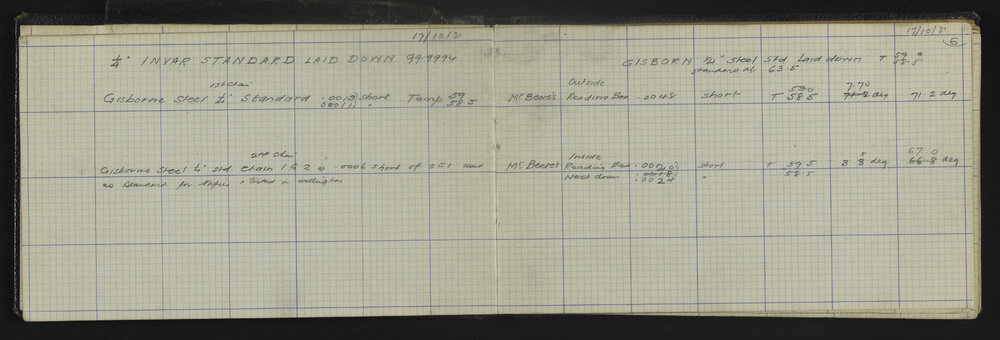 17/10/31
¼" INVAR STANDARD LAID DOWN 99.9994
1st Chain
Gisborne Steel ¼" Standard .0013 short Temp 59
.00111 " 58.5
2nd Chain
Gisborne Steel ¼" Std Chain 1 & 2 is .0006 short of 051 used
as Standard for Napier & tested in Wellington
17/10/31
6
GISBORN ¼" Steel Std Laid down T 59.0
58.5
Standard at 63.5
Outside
Mr Beere's Reading Box .0048 short T 59.0 7.70 71.2 deg
58.5 deg
Inside
Mr Beere's Reading short T 59.5 8 deg 67.0
Next down .0018 58.5 66.8 deg
.0024 "